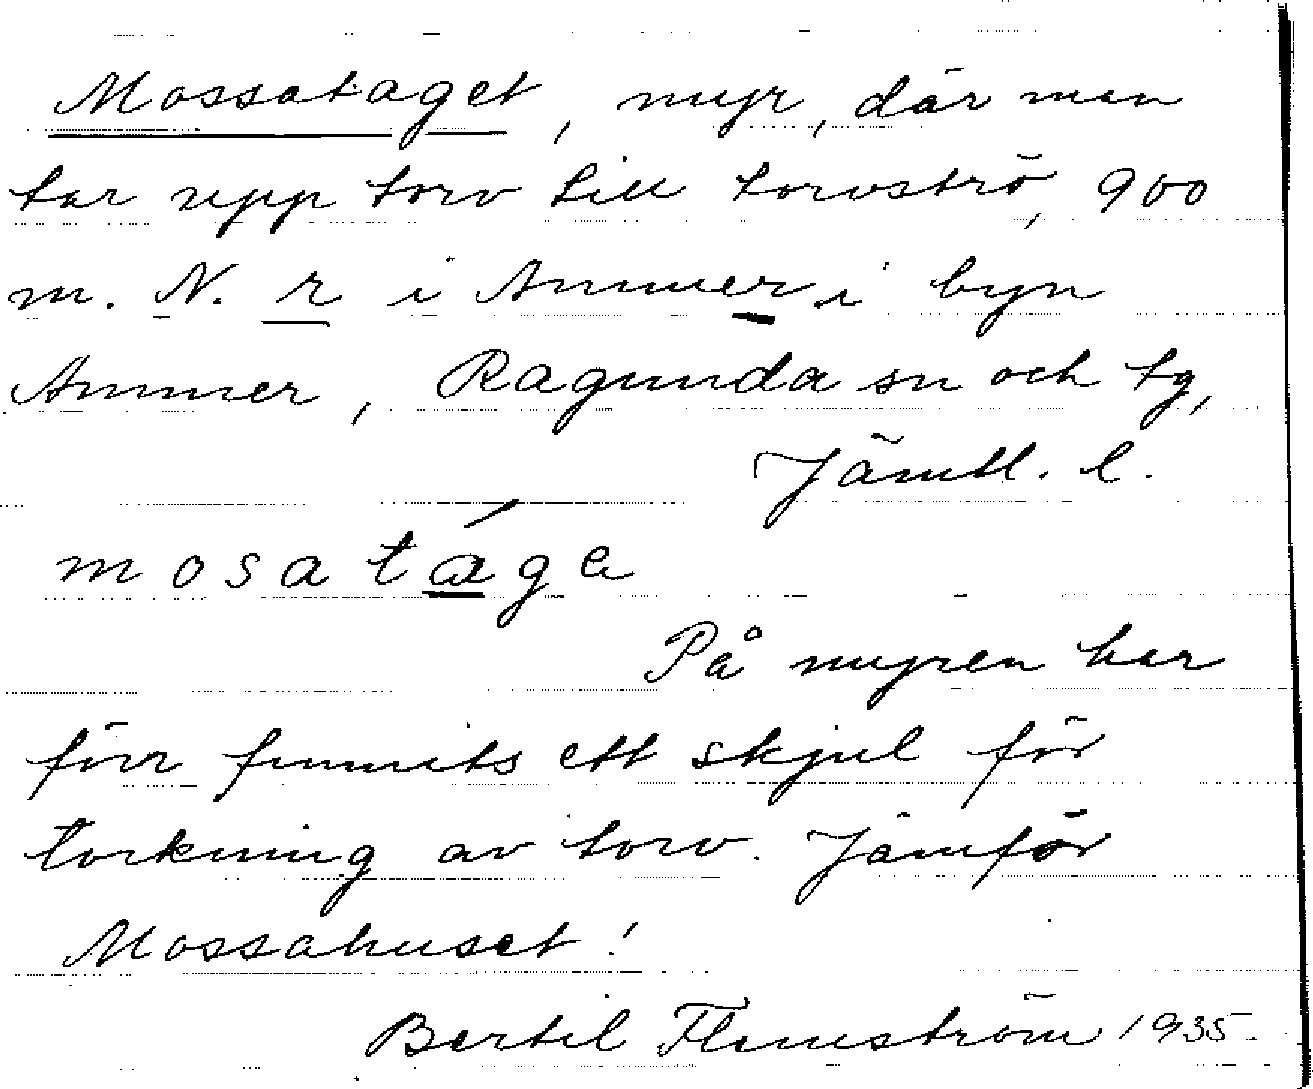 Mossataget, myr, där man
tar upp torv till torvströ, 900
m. N. r i Ammer i byn
Ammer, Ragunda sn och tg,
Jämtl. l.
mosatáge
På myren har
förr funnits ett skjul för
torkning av torv. Jämför
Mossahuset!
Bertil Flemström 1935.